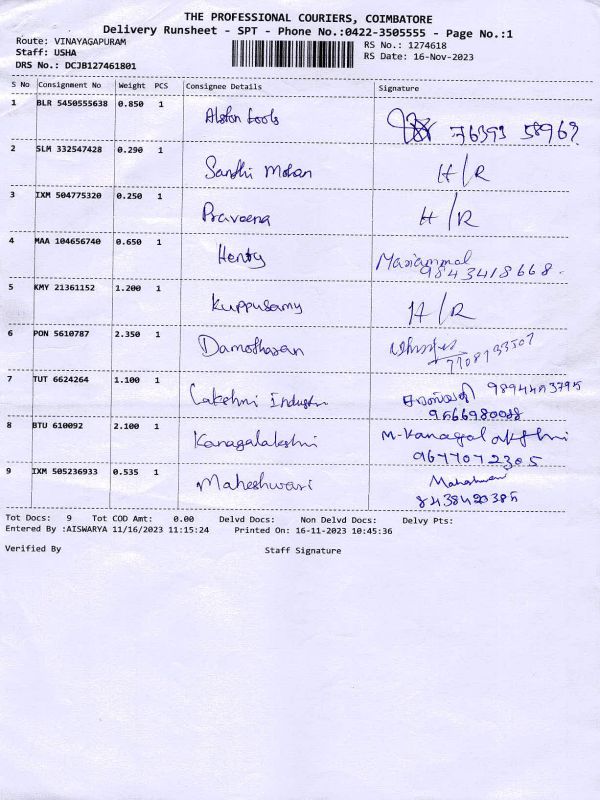 THE PROFESSIONAL COURIERS, COIMBATORE
Delivery Runsheet - SPT - Phone No.:0422-3505555 - Page No.:1
Route: VINAYAGAPURAM RS No.: 1274618
Staff: USHA RS Date: 16-Nov-2023
DRS No.: DCJB127461801
S No Consignment No Weight PCS Consignee Details Signature
1 BLR 5450555638 0.850 1 Alston tools 76393 58963
2 SLM 332547428 0.290 1 Sandhi Mohan H/R
3 IXM 504775320 0.250 1 Praveena H/R
4 MAA 104656740 0.650 1 Henry Mariammal
9843418668.
5 KMY 21361152 1.200 1 Kuppusamy H/R
6 PON 5610787 2.350 1 Damotharan
7708733507
7 TUT 6624264 1.100 1 Lakshmi Industri 9894443795
9566980088
8 BTU 610092 2.100 1 Kanagalakshmi M-Kanagalakshmi
9677072305
9 IXM 505236933 0.535 1 Maheshwari Maheshwari
8438420385
Tot Docs: 9 Tot COD Amt: 0.00 Delvd Docs: Non Delvd Docs: Delvy Pts:
Entered By :AISWARYA 11/16/2023 11:15:24 Printed On: 16-11-2023 10:45:36
Verified By Staff Signature